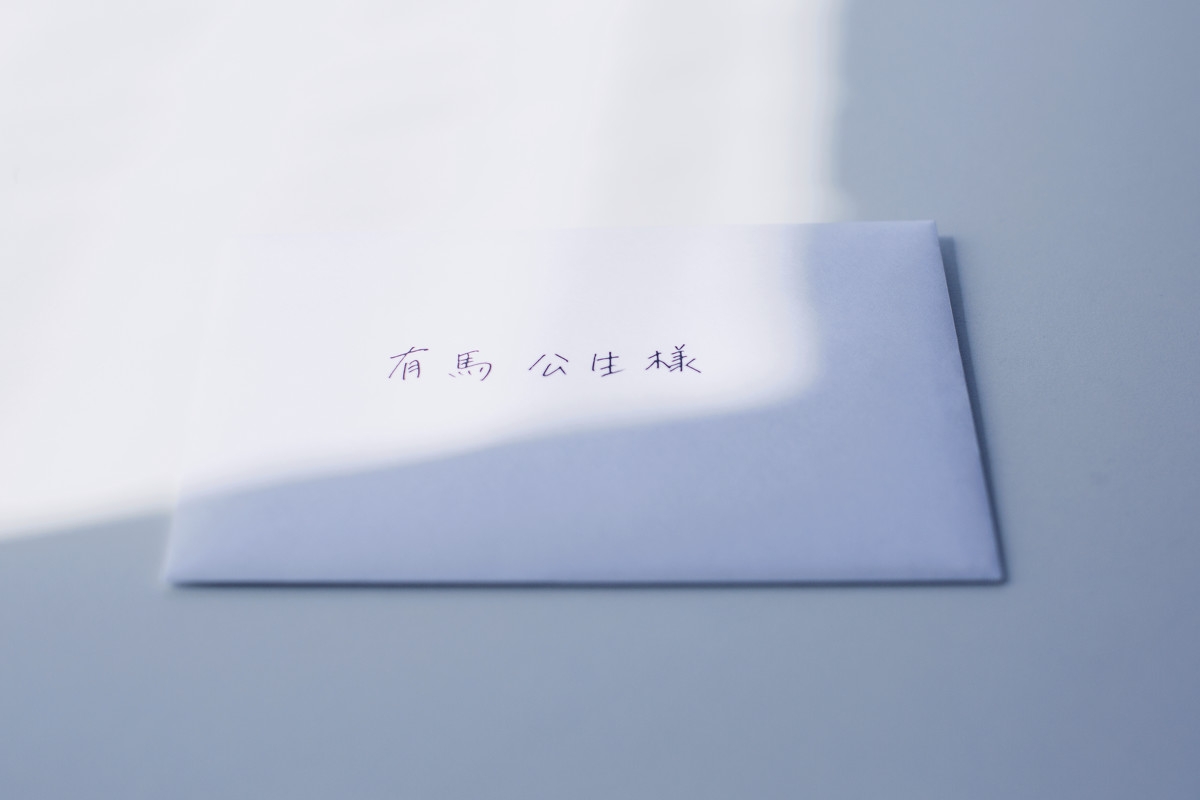 有馬 公生様